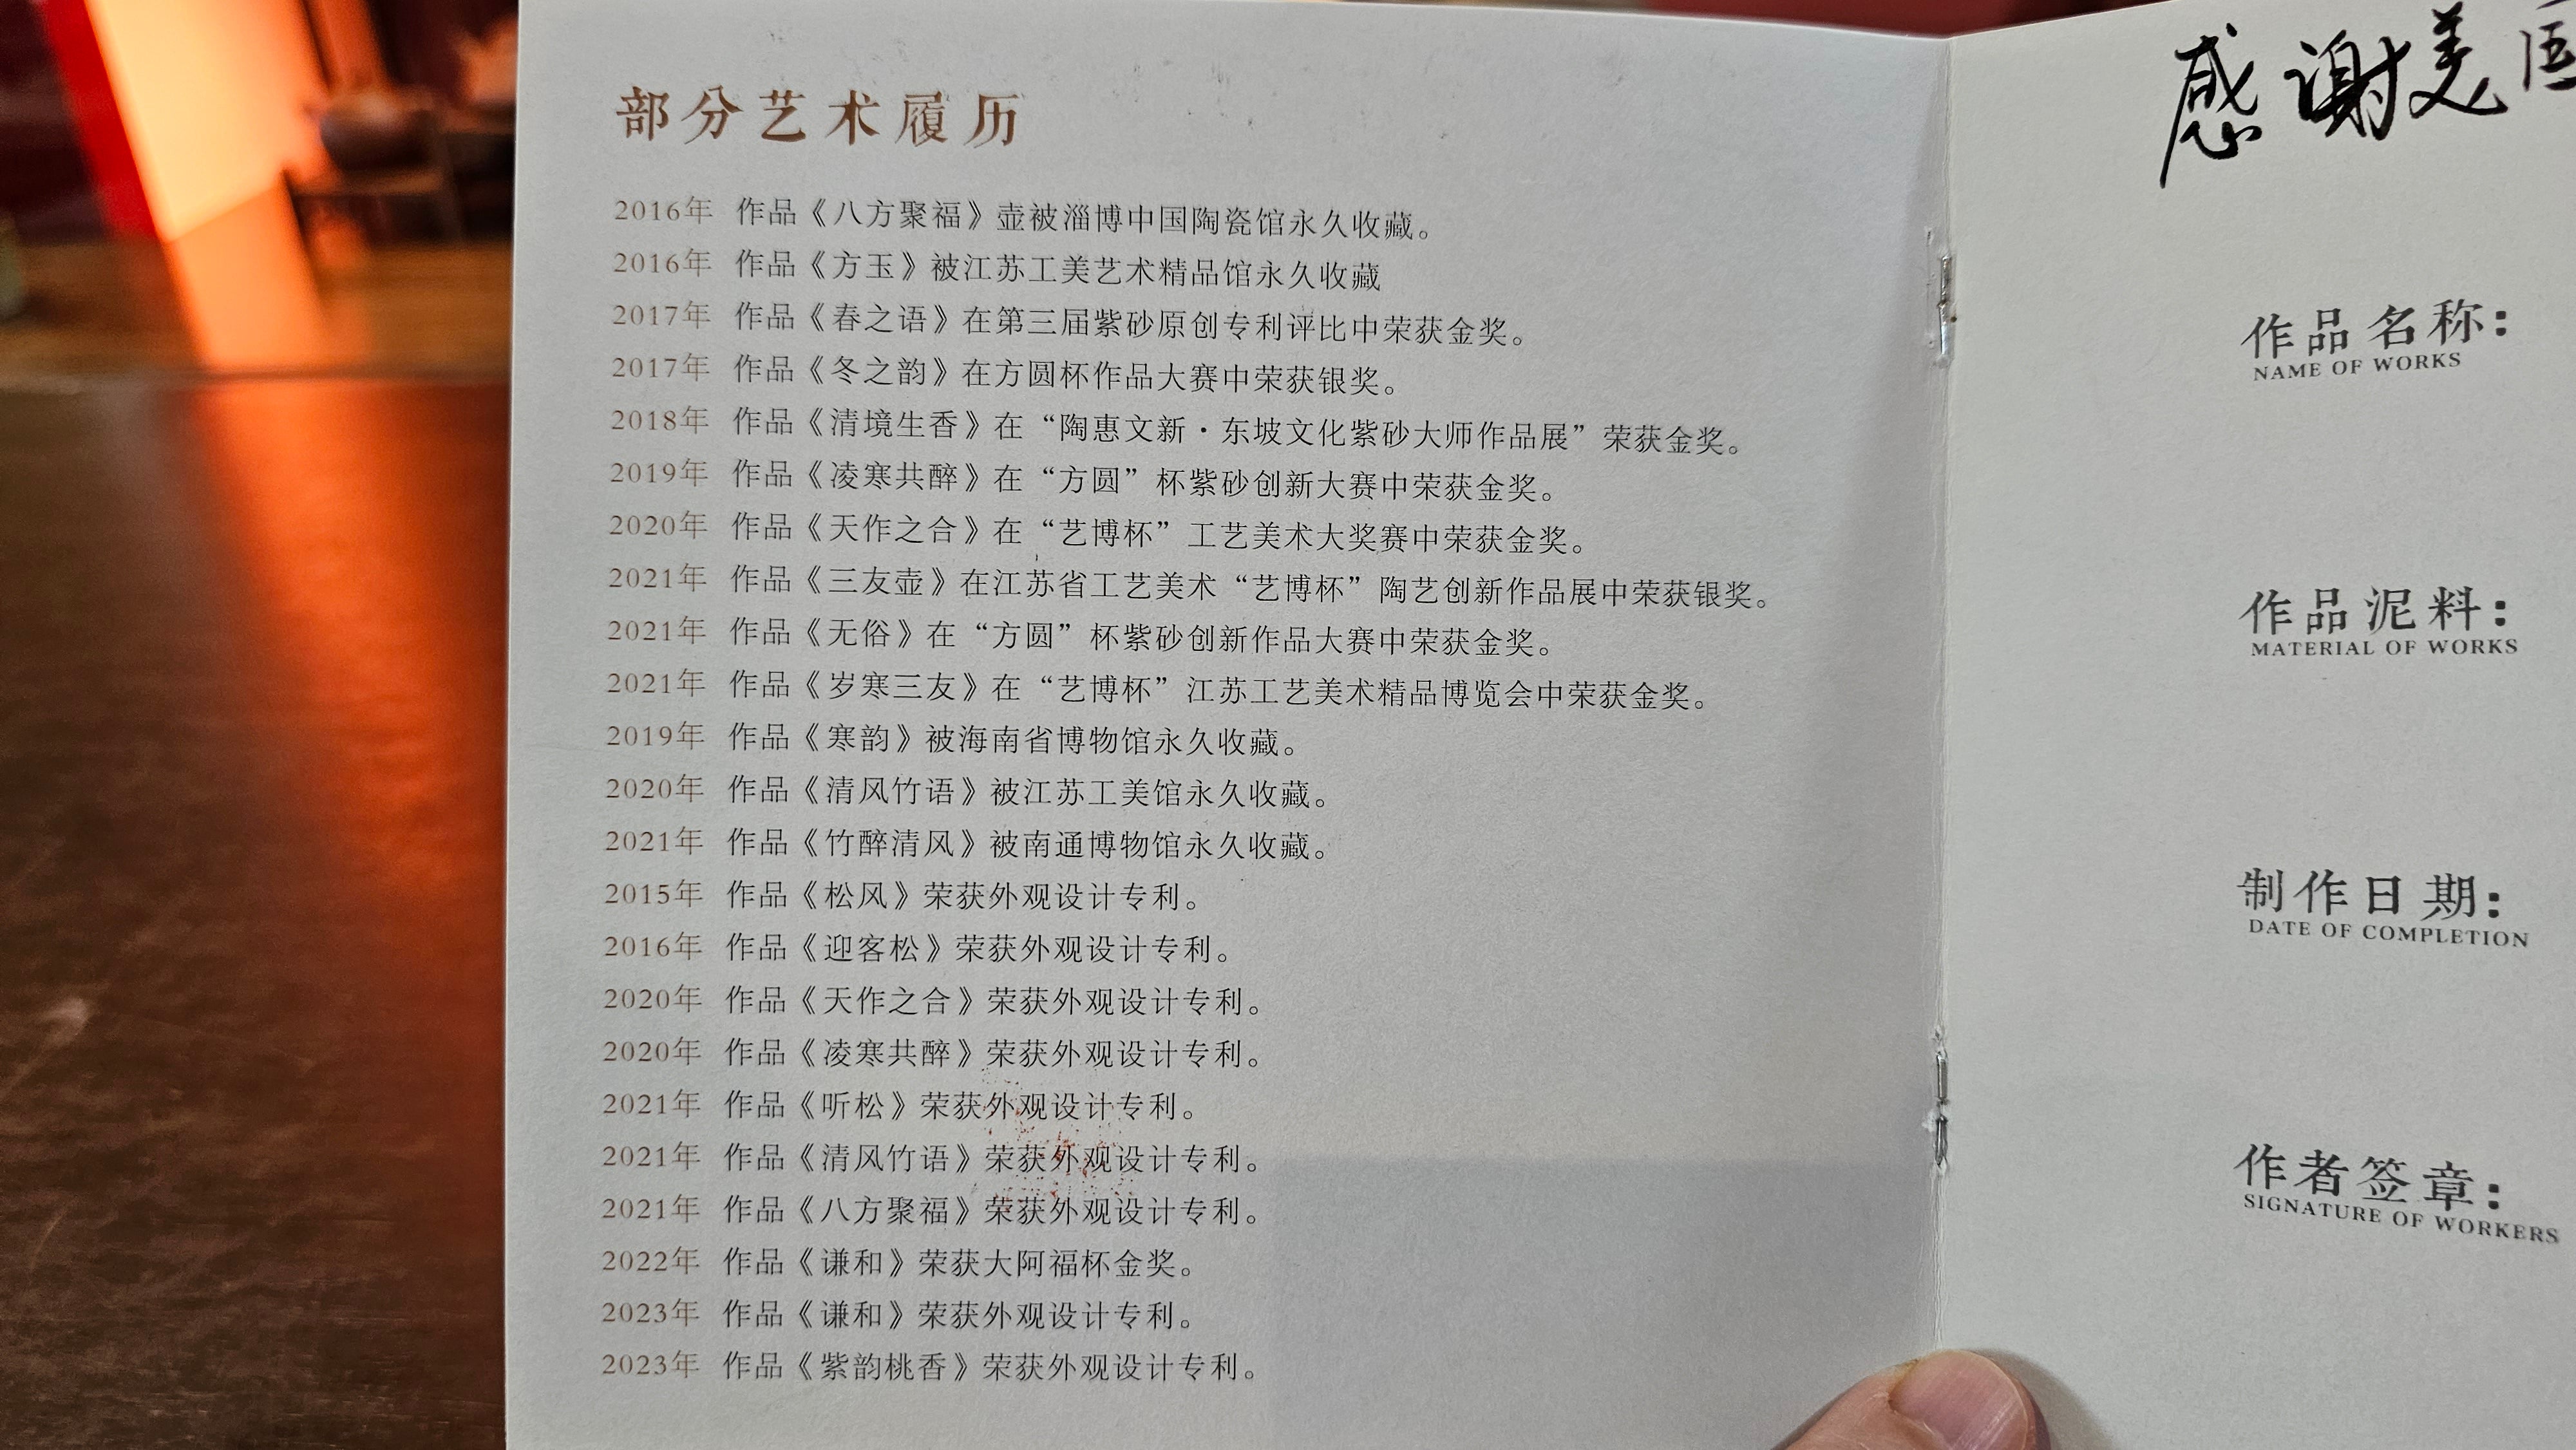 部分艺术履历
2016年 作品《八方聚福》壶被淄博中国陶瓷馆永久收藏。
2016年 作品《方玉》被江苏工美艺术精品馆永久收藏
2017年 作品《春之语》在第三届紫砂原创专利评比中荣获金奖。
2017年 作品《冬之韵》在方圆杯作品大赛中荣获银奖。
2018年 作品《清境生香》在“陶惠文新·东坡文化紫砂大师作品展”荣获金奖。
2019年 作品《凌寒共醉》在“方圆”杯紫砂创新大赛中荣获金奖。
2020年 作品《天作之合》在“艺博杯”工艺美术大奖赛中荣获金奖。
2021年 作品《三友壶》在江苏省工艺美术“艺博杯”陶艺创新作品展中荣获银奖。
2021年 作品《无俗》在“方圆”杯紫砂创新作品大赛中荣获金奖。
2021年 作品《岁寒三友》在“艺博杯”江苏工艺美术精品博览会中荣获金奖。
2019年 作品《寒韵》被海南省博物馆永久收藏。
2020年 作品《清风竹语》被江苏工美馆永久收藏。
2021年 作品《竹醉清风》被南通博物馆永久收藏。
2015年 作品《松风》荣获外观设计专利。
2016年 作品《迎客松》荣获外观设计专利。
2020年 作品《天作之合》荣获外观设计专利。
2020年 作品《凌寒共醉》荣获外观设计专利。
2021年 作品《听松》荣获外观设计专利。
2021年 作品《清风竹语》荣获外观设计专利。
2021年 作品《八方聚福》荣获外观设计专利。
2022年 作品《谦和》荣获大阿福杯金奖。
2023年 作品《谦和》荣获外观设计专利。
2023年 作品《紫韵桃香》荣获外观设计专利。
感谢美
作品名称:
NAME OF WORKS
作品泥料:
MATERIAL OF WORKS
制作日期:
DATE OF COMPLETION
作者签章:
SIGNATURE OF WORKERS